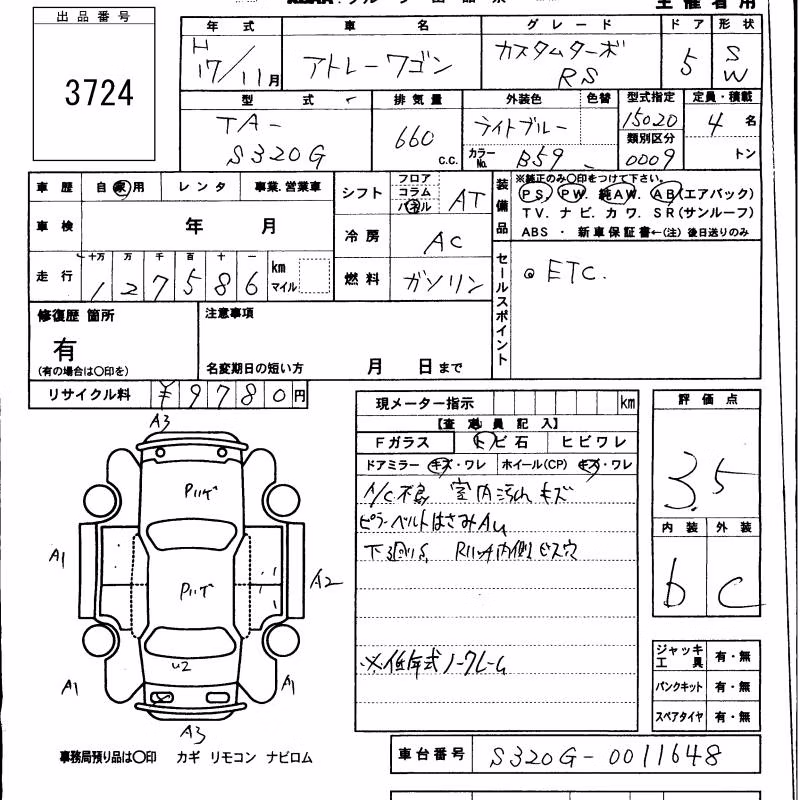 主催者用
出品番号
3724
年式 車名 グレード ドア 形状
H 17/11月 アトレーワゴン カスタムターボ RS 5 S W
型式 排気量 外装色 色替 型式指定 定員・積載
TA-S320G 660 c.c. ライトブルー 15020 4名
類別区分
カラーNo. B59 0009 トン
車歴 自家用 レンタ 事業.営業車
シフト フロア コラム パネル AT
装備品
※純正のみ〇印をつけて下さい。
PS. PW. 純AW. AB(エアバック)
TV. ナビ. カワ. SR(サンルーフ)
ABS ・ 新車保証書←(注) 後日送りのみ
車検 年 月
冷房 AC
走行 十万 万 千 百 十 一
127586 km マイル
燃料 ガソリン
セールスポイント
ETC.
修復歴 箇所
有
(有の場合は〇印を)
注意事項
名変期日の短い方 月 日まで
リサイクル料 ¥9780円
現メーター指示 km
【査定員記入】
Fガラス トビ石 ヒビワレ
ドアミラー キズ・ワレ ホイール(CP) キズ・ワレ
A/C不良 室内汚れ キズ
ピラーベルトはさみAu
下廻りS
※低年式ノークレーム
評価点
3.5
内装 外装
b C
ジャッキ工具 有・無
パンクキット 有・無
スペアタイヤ 有・無
A3
A1
A2
U2
A1
A1
A3
事務局預り品は〇印 カギ リモコン ナビロム
車台番号 S320G-0011648